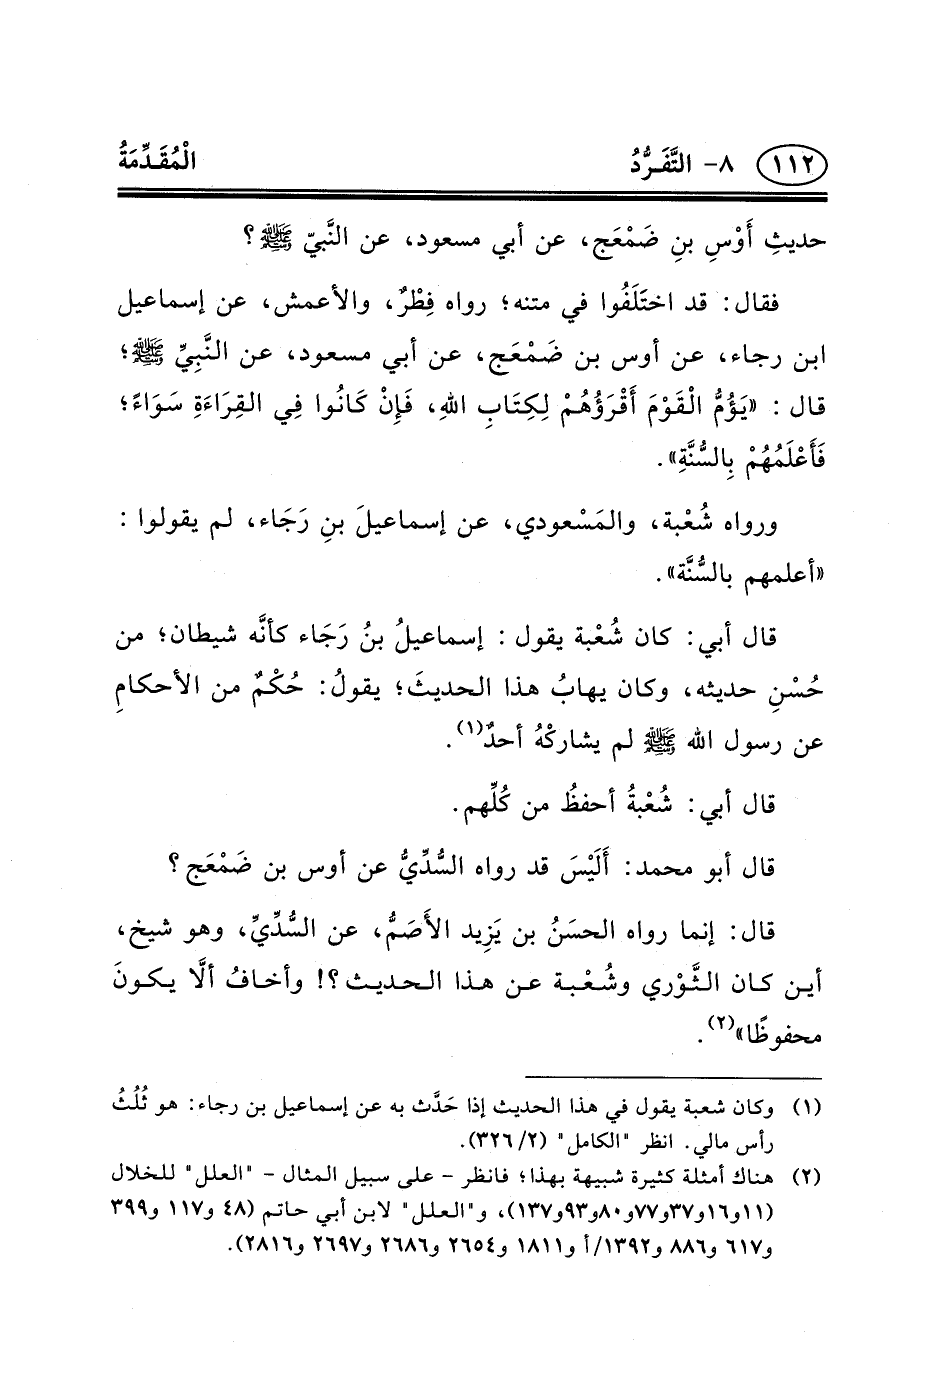 ١١٢ ٨- التَّفَرُّدُ الْمُقَدِّمَةُ
حديثِ أَوْسِ بنِ ضَمْعَج، عن أبي مسعود، عن النَّبيّ ﷺ ؟
فقال: قد اختَلَفُوا في متنه؛ رواه فِطْرٌ، والأعمش، عن إسماعيل
ابن رجاء، عن أوس بن ضَمْعَج، عن أبي مسعود، عن النَّبيِّ ﷺ؛
قال : «يَؤُمُّ الْقَوْمَ أَقْرَؤُهُمْ لِكِتَابِ اللهِ، فَإِنْ كَانُوا فِي القِرَاءَةِ سَوَاءً؛
فَأَعْلَمُهُمْ بِالسُّنَّةِ».
ورواه شُعْبة، والمَسْعودي، عن إسماعيلَ بنِ رَجَاء، لم يقولوا :
«أعلمهم بالسُّنَّة».
قال أبي: كان شُعْبة يقول : إسماعيلُ بنُ رَجَاء كأنَّه شيطان؛ من
حُسْنِ حديثه، وكان يهابُ هذا الحديثَ؛ يقولُ: حُكْمٌ من الأحكامِ
عن رسول الله ﷺ لم يشاركْهُ أحدٌ(١).
قال أبي: شُعْبةُ أحفظُ من كُلِّهم.
قال أبو محمد: أَلَيْسَ قد رواه السُّدِّيُّ عن أوس بن ضَمْعَج ؟
قال: إنما رواه الحسَنُ بن يَزِيد الأَصَمُّ، عن السُّدِّيِّ، وهو شيخ،
أين كان الثَّوْري وشُعْبة عن هذا الحديث؟! وأخافُ ألَّا يكونَ
محفوظًا»(٢).
(١) وكان شعبة يقول في هذا الحديث إذا حَدَّث به عن إسماعيل بن رجاء: هو ثُلُثُ
رأس مالي. انظر "الكامل" (٢/ ٣٢٦).
(٢) هناك أمثلة كثيرة شبيهة بهذا؛ فانظر - على سبيل المثال - "العلل" للخلال
(١١و١٦و٣٧و٧٧و٨٠و٩٣و١٣٧)، و"العلل" لابن أبي حاتم (٤٨ و١١٧ و٣٩٩
و٦١٧ و٨٨٦ و١٣٩٢/أ و١٨١١ و٢٦٥٤ و٢٦٨٦ و٢٦٩٧ و٢٨١٦).